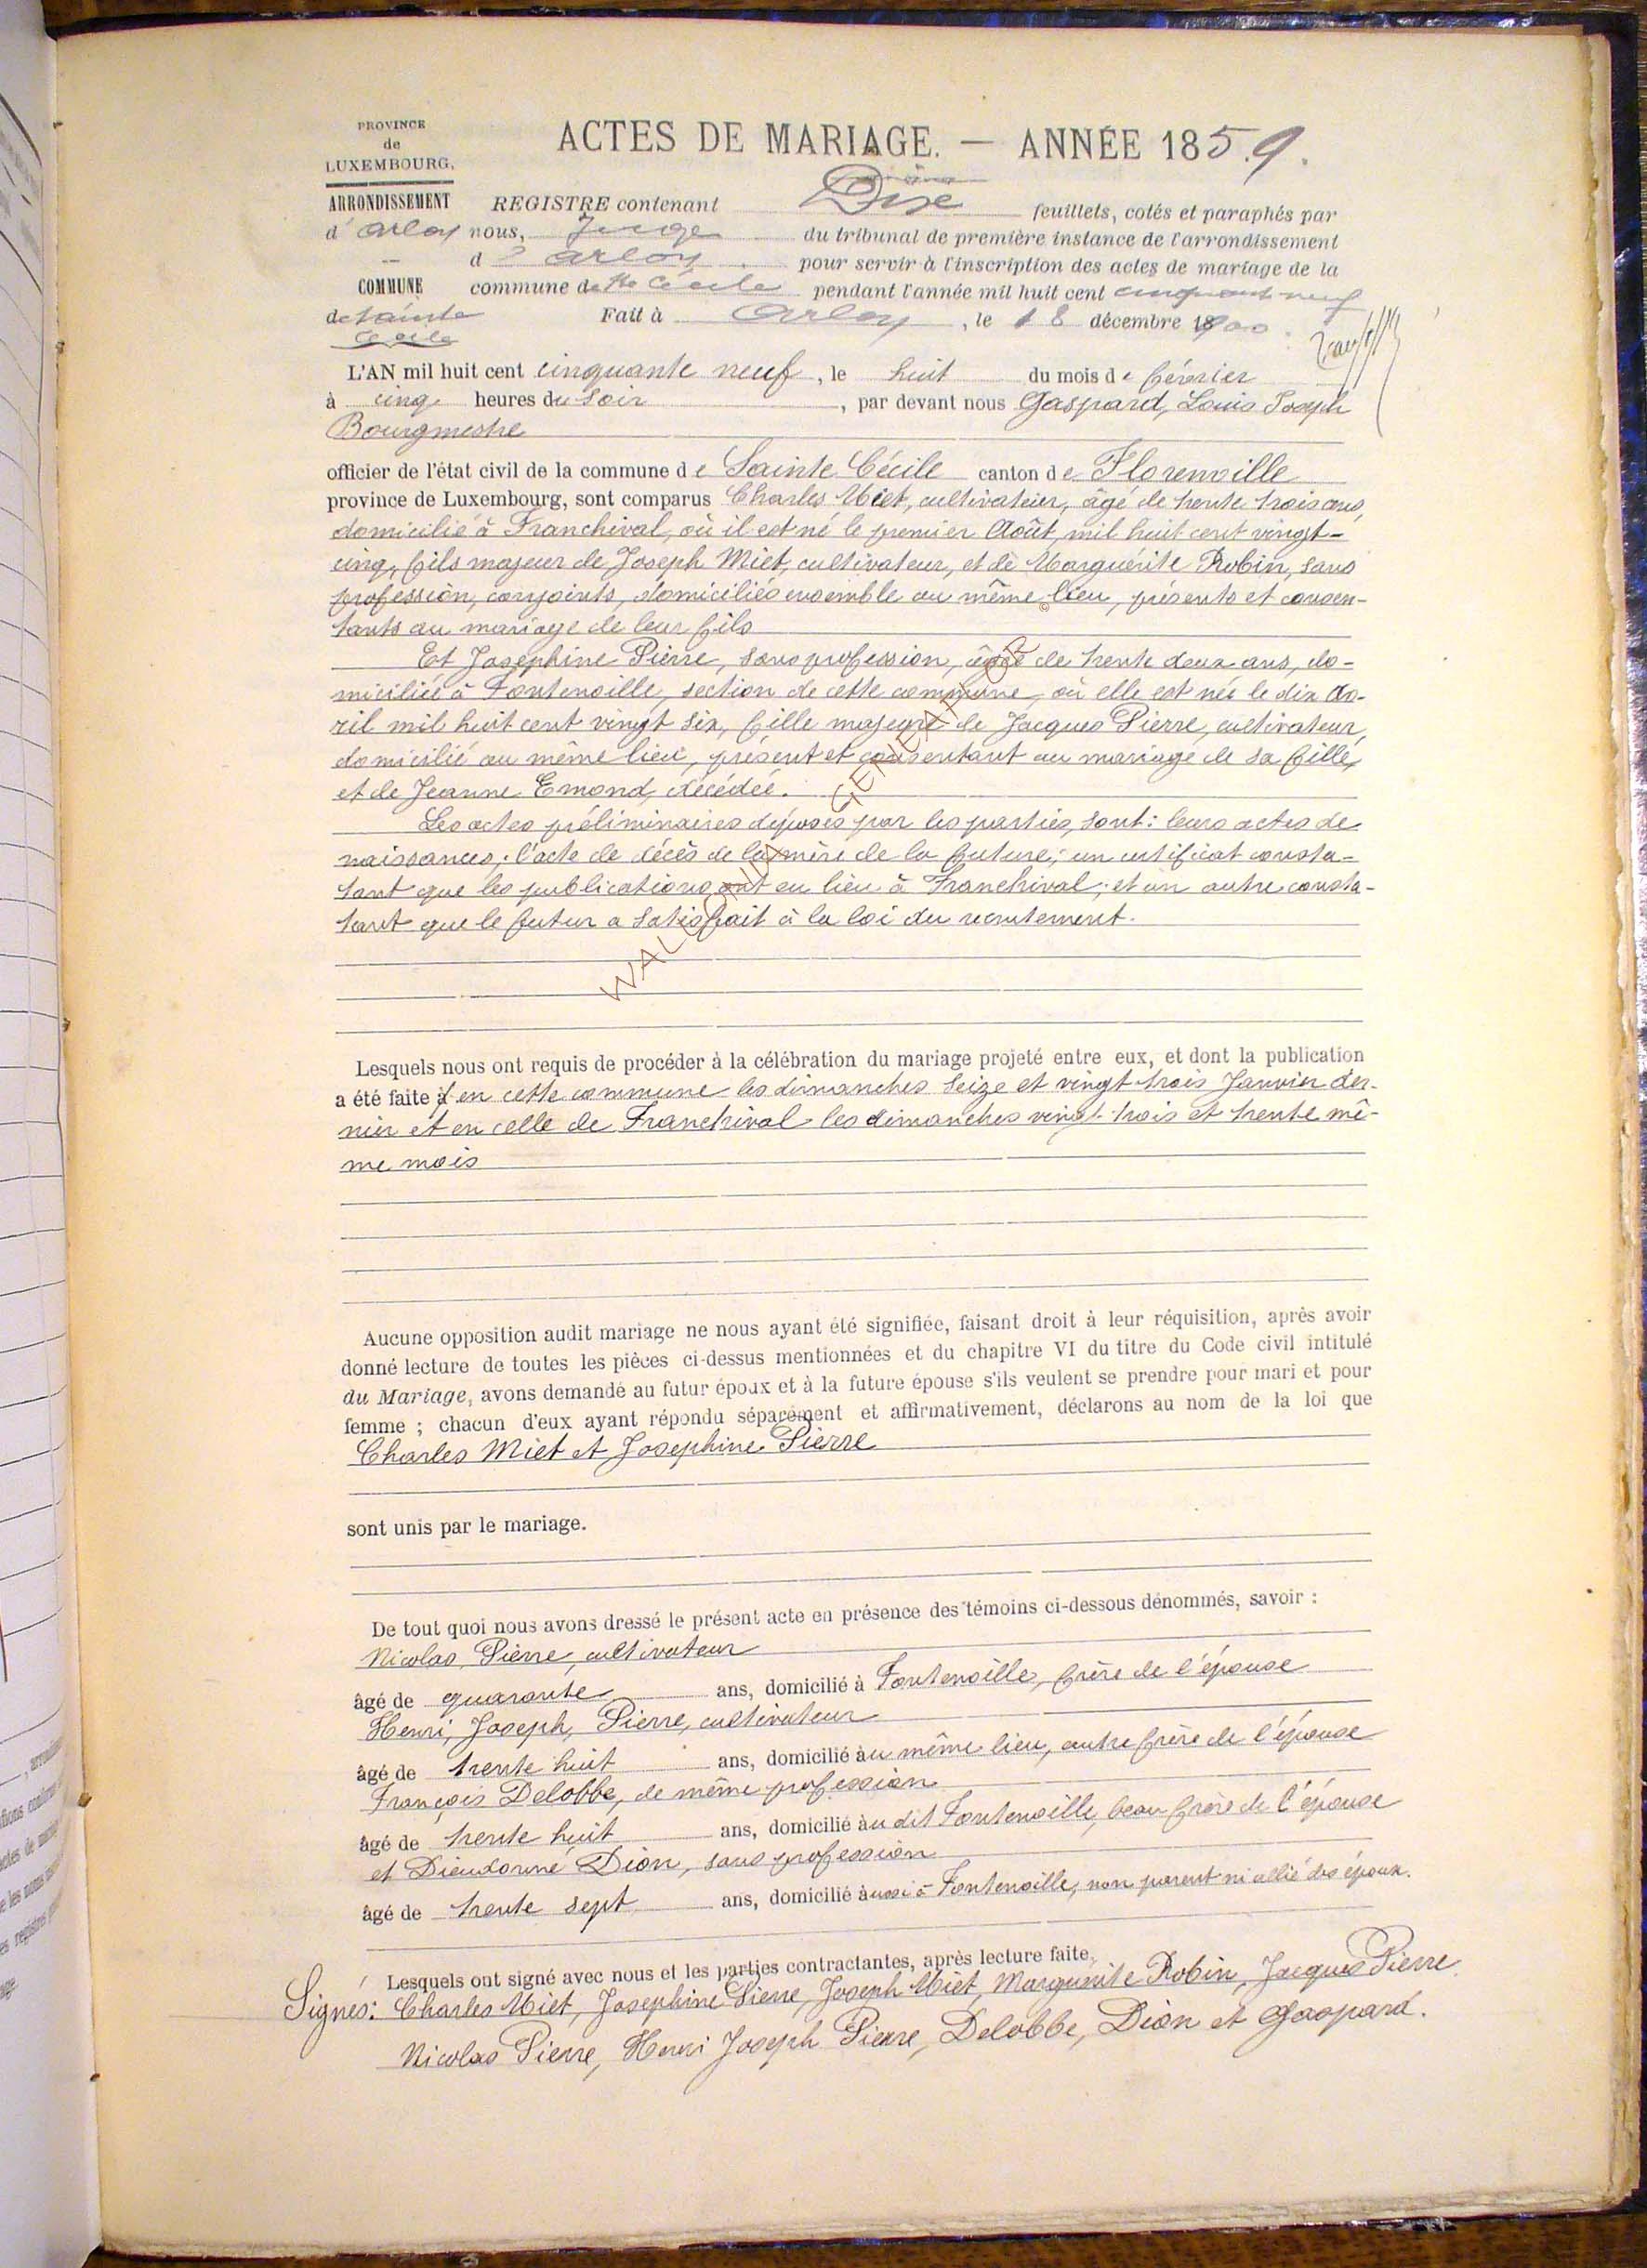 PROVINCE
de
LUXEMBOURG.
ACTES DE MARIAGE. — ANNÉE 185.9.
ARRONDISSEMENT
REGISTRE contenant Dix feuillets, cotés et paraphés par
d'Arlon nous, Juge du tribunal de première instance de l'arrondissement
d'Arlon pour servir à l'inscription des actes de mariage de la
COMMUNE
commune de Ste Cécile pendant l'année mil huit cent cinquante neuf
de Sainte
Cécile
Fait à Arlon, le 18 décembre 1900.
L'AN mil huit cent cinquante neuf, le huit du mois de février
à cinq heures du soir, par devant nous Gaspard, Louis Joseph
Bourgmestre
officier de l'état civil de la commune de Sainte Cécile canton de Florenville
province de Luxembourg, sont comparus Charles Miet, cultivateur, âgé de trente trois ans,
domicilié à Francheval, où il est né le premier Août, mil huit cent vingt-
cinq, fils majeur de Joseph Miet, cultivateur, et de Marguérite Robin, sans
profession, conjoints, domiciliés ensemble au même lieu, présents et consen-
tants au mariage de leur fils
Et Josephine Pierre, sans profession, âgée de trente deux ans, do-
miciliée à Fontenoille, section de cette commune, où elle est née le dix Av-
ril mil huit cent vingt six, fille majeure de Jacques Pierre, cultivateur,
domicilié au même lieu, présent et consentant au mariage de sa fille,
et de Jeanne Emond, décédée.
Les actes préliminaires déposés par les parties, sont: leurs actes de
naissances; l'acte de décès de la mère de la future; un certificat consta-
tant que les publications ont eu lieu à Francheval; et un autre consta-
tant que le futur a satisfait à la loi du recrutement.
© WALLONIA GENEAFR.OR
Lesquels nous ont requis de procéder à la célébration du mariage projeté entre eux, et dont la publication
a été faite à en cette commune les dimanches seize et vingt trois Janvier der-
nier et en celle de Francheval les dimanches vingt-trois et trente mê-
me mois
Aucune opposition audit mariage ne nous ayant été signifiée, faisant droit à leur réquisition, après avoir
donné lecture de toutes les pièces ci-dessus mentionnées et du chapitre VI du titre du Code civil intitulé
du Mariage, avons demandé au futur époux et à la future épouse s'ils veulent se prendre pour mari et pour
femme ; chacun d'eux ayant répondu séparément et affirmativement, déclarons au nom de la loi que
Charles Miet et Josephine Pierre
sont unis par le mariage.
De tout quoi nous avons dressé le présent acte en présence des témoins ci-dessous dénommés, savoir :
Nicolas Pierre, cultivateur
âgé de quarante ans, domicilié à Fontenoille, frère de l'épouse
Henri, Joseph, Pierre, cultivateur
âgé de trente huit ans, domicilié au même lieu, autre frère de l'épouse
François Delobbe, de même profession
âgé de trente huit ans, domicilié au dit Fontenoille, beau frère de l'épouse
et Dieudonné Dion, sans profession
âgé de trente sept ans, domicilié aussi à Fontenoille, non parent ni allié des époux.
Lesquels ont signé avec nous et les parties contractantes, après lecture faite.
Signés: Charles Miet, Josephine Pierre, Joseph Miet, Marguerite Robin, Jacques Pierre
Nicolas Pierre, Henri Joseph Pierre, Delobbe, Dion et Gaspard.